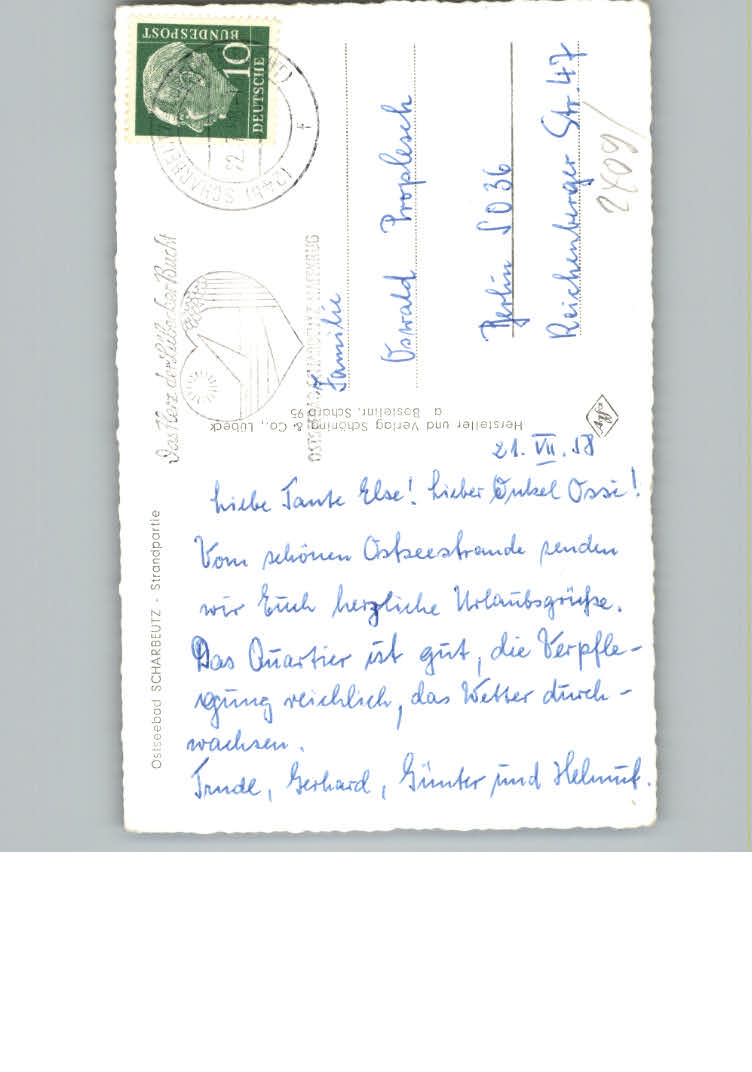 21. VII. 58
Liebe Tante Else! Lieber Onkel Ossi!
Vom schönen Ostseestrande senden
wir Euch herzliche Urlaubsgrüße.
Das Quartier ist gut, die Verpfle-
gung reichlich, das Wetter durch-
wachsen.
Trude, Gerhard, Günter und Helmut.
Ostseebad SCHARBEUTZ - Strandpartie
Hersteller und Verlag Schöning & Co., Lübeck
Scharb 95
Familie
Oswald Proplesch
Berlin SO 36
Reichenberger Str. 47
2409/
DEUTSCHE
BUNDESPOST
10
(24b) SCHARBEUTZ
22.
f
Das Herz der Lübecker Bucht